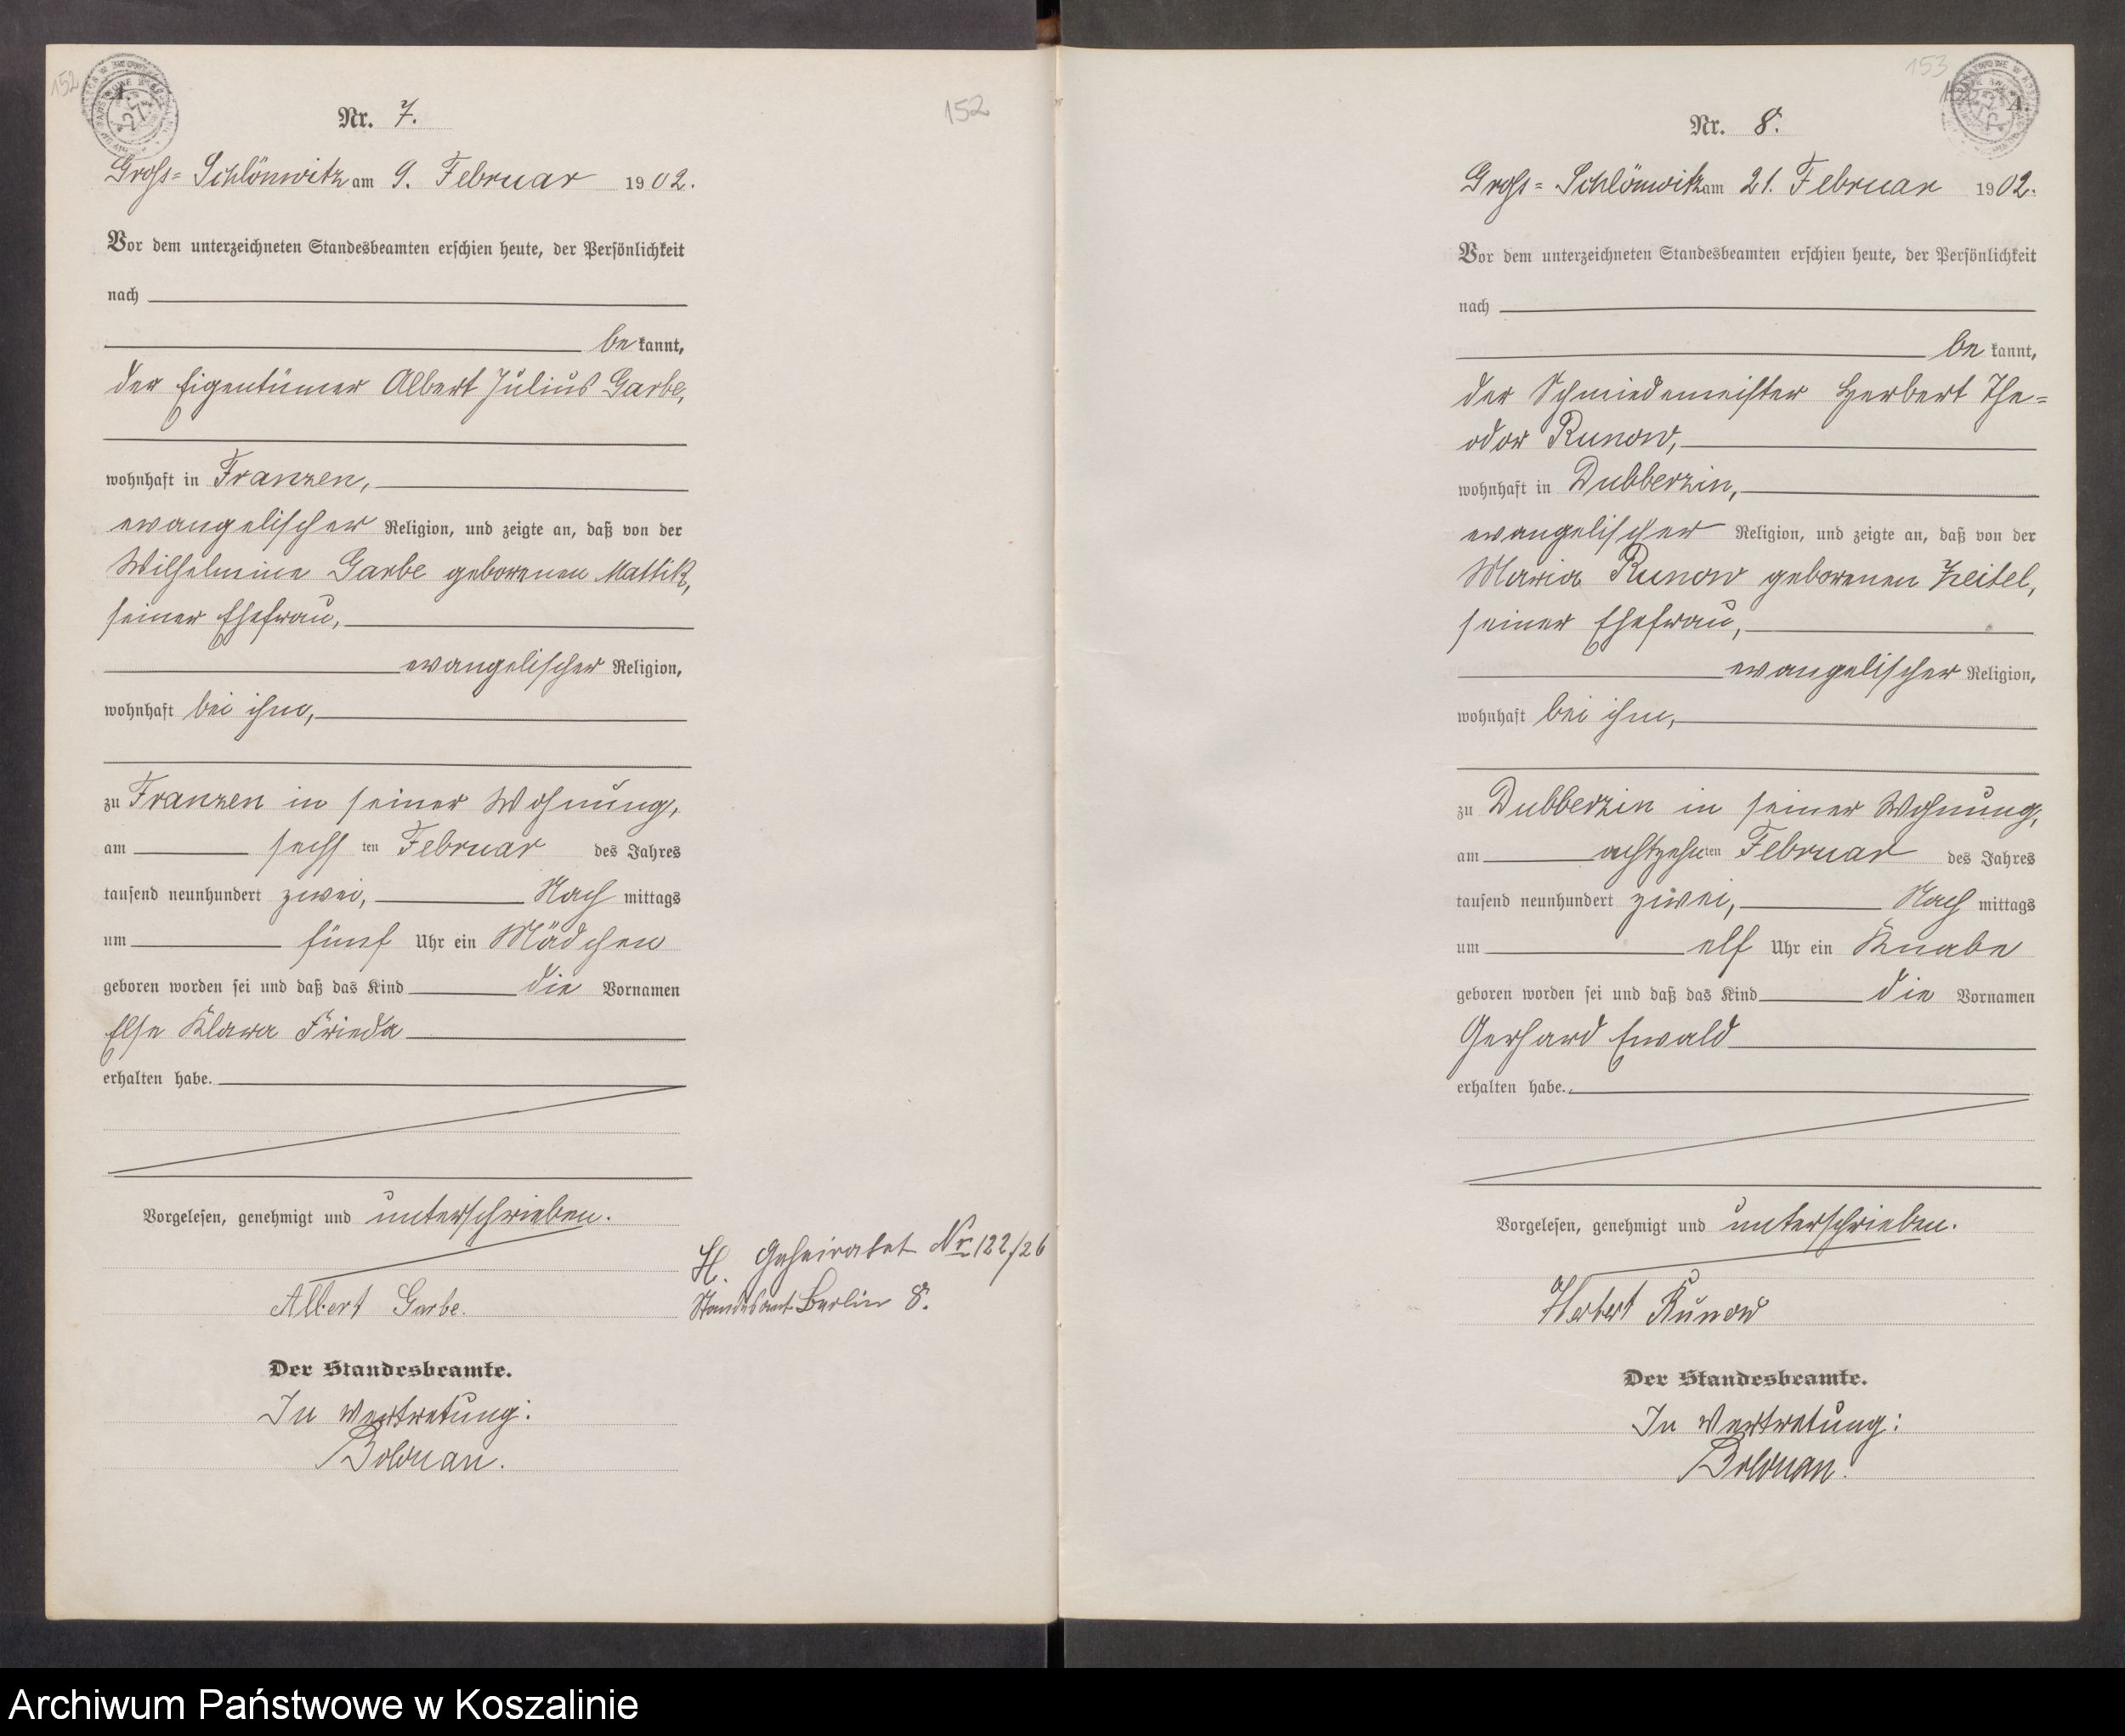 152
A.
Nr. 7.
152
Gross= Schlönwitz am 9. Februar 1902.
Vor dem unterzeichneten Standesbeamten erschien heute, der Persönlichkeit
nach
be kannt,
der Eigentümer Albert Julius Garbe,
wohnhaft in Franzen,
evangelischer Religion, und zeigte an, daß von der
Wilhelmine Garbe geborenen Mattik,
seiner Ehefrau,
evangelischer Religion,
wohnhaft bei ihm,
zu Franzen in seiner Wohnung,
am sechs ten Februar des Jahres
tausend neunhundert zwei, Nach mittags
um fünf Uhr ein Mädchen
geboren worden sei und daß das Kind die Vornamen
Else Klara Frieda
erhalten habe.
Vorgelesen, genehmigt und unterschrieben.
Albert Garbe.
H. Geheiratet Nr 122/26
Standesamt Berlin 8.
Der Standesbeamte.
In Vertretung:
153
A.
Nr. 8.
Gross= Schlönwitz am 21. Februar 1902.
Vor dem unterzeichneten Standesbeamten erschien heute, der Persönlichkeit
nach
be kannt,
der Schmiedemeister Herbert The=
odor Runow,
wohnhaft in Dubberzin,
evangelischer Religion, und zeigte an, daß von der
Maria Runow geborenen Zeitel,
seiner Ehefrau,
evangelischer Religion,
wohnhaft bei ihm,
zu Dubberzin in seiner Wohnung,
am achtzehnten Februar des Jahres
tausend neunhundert zwei, Nach mittags
um elf Uhr ein Knabe
geboren worden sei und daß das Kind die Vornamen
Gerhard Ewald
erhalten habe.
Vorgelesen, genehmigt und unterschrieben.
Herbert Runow
Der Standesbeamte.
In Vertretung:
Archiwum Państwowe w Koszalinie